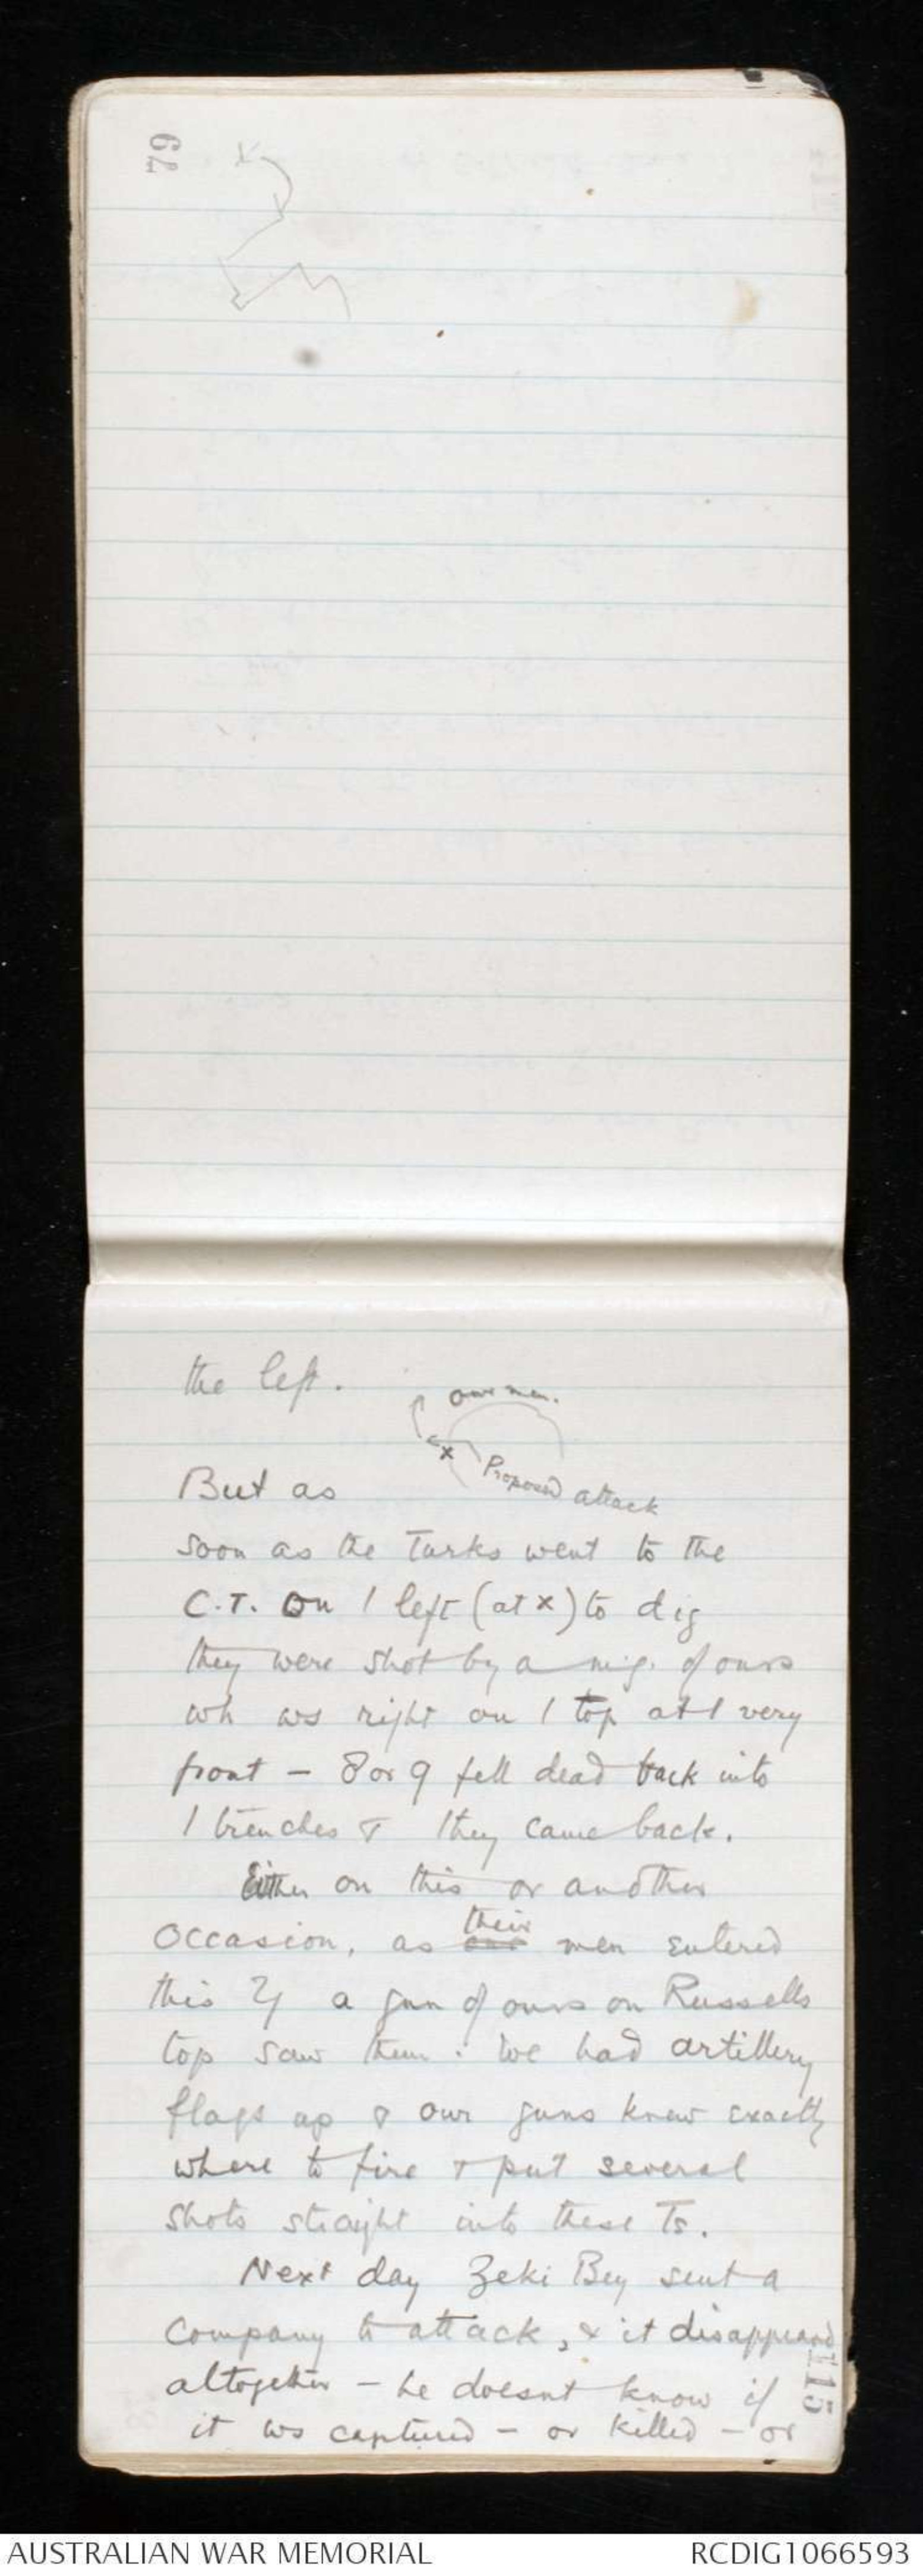 79
the left.
our men.
x
Proposed attack
But as
soon as the Turks went to the
C.T. on / left (at x) to dig
they were shot by a m.g. of ours
wh ws right on / top at / very
front - 8 or 9 fell dead back into
/ trenches & they came back.
Either on this or another
occasion, as our their men entered
this a gun of ours on Russells
top saw them. We had artillery
flags up & our guns knew exactly
where to fire & put several
shots straight into these Ts.
Next day Zeki Bey sent a
Company to attack, & it disappeared
altogether - he doesnt know if
it ws captured - or killed - or
115
AUSTRALIAN WAR MEMORIAL
RCDIG1066593